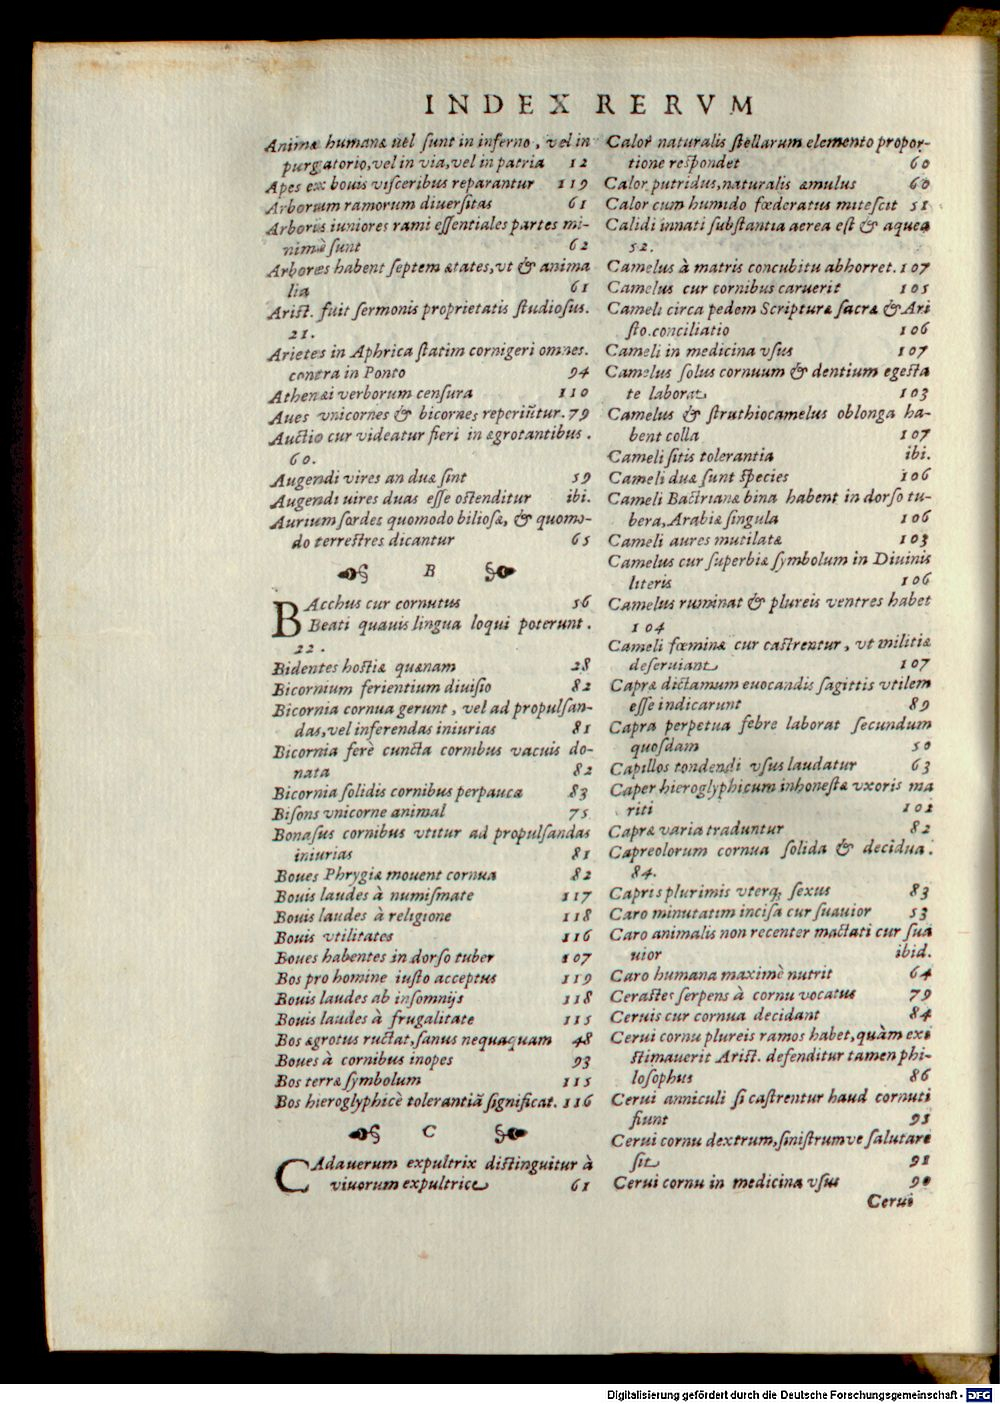 INDEX RERVM
Animæ humanæ uel sunt in inferno, vel in
purgatorio, vel in via, vel in patria 12
Apes ex bouis visceribus reparantur 119
Arborum ramorum diuersitas 61
Arboris iuniores rami essentiales partes mi-
nimè sunt 62
Arbores habent septem ætates, vt & anima
lia 61
Arist. fuit sermonis proprietatis studiosus.
21.
Arietes in Aphrica statim cornigeri omnes.
contra in Ponto 94
Athenæi verborum censura 110
Aues vnicornes & bicornes reperiũtur. 79
Auctio cur videatur fieri in ægrotantibus.
60.
Augendi vires an duæ sint 59
Augendi uires duas esse ostenditur ibi.
Aurium sordes quomodo biliosæ, & quomo-
do terrestres dicantur 65
B
BAcchus cur cornutus 56
Beati quauis lingua loqui poterunt.
22.
Bidentes hostiæ quænam 28
Bicornium ferientium diuisio 82
Bicornia cornua gerunt, vel ad propulsan-
das, vel inferendas iniurias 81
Bicornia ferè cuncta cornibus vacuis do-
nata 82
Bicornia solidis cornibus perpauca 83
Bisons vnicorne animal 75
Bonasus cornibus vtitur ad propulsandas
iniurias 81
Boues Phrygiæ mouent cornua 82
Bouis laudes à numismate 117
Bouis laudes à religione 118
Bouis vtilitates 116
Boues habentes in dorso tuber 107
Bos pro homine iusto acceptus 119
Bouis laudes ab insomnijs 118
Bouis laudes à frugalitate 115
Bos ægrotus ructat, sanus nequaquam 48
Boues à cornibus inopes 93
Bos terræ symbolum 115
Bos hieroglyphicè tolerantiã significat. 116
C
CAdauerum expultrix distinguitur à
viuorum expultrice 61
Calor naturalis stellarum elemento propor-
tione respondet 60
Calor putridus, naturalis æmulus 60
Calor cum humido fœderatus mitescit 51
Calidi innati substantia aerea est & aquea
52.
Camelus à matris concubitu abhorret. 107
Camelus cur cornibus caruerit 105
Cameli circa pedem Scripturæ sacræ & Ari
sto. conciliatio 106
Cameli in medicina vsus 107
Camelus solus cornuum & dentium egesta
te laborat 103
Camelus & struthiocamelus oblonga ha-
bent colla 107
Cameli sitis tolerantia ibi.
Cameli duæ sunt species 106
Cameli Bactrianæ bina habent in dorso tu-
bera, Arabiæ singula 106
Cameli aures mutilatæ 103
Camelus cur superbiæ symbolum in Diuinis
literis 106
Camelus ruminat & plureis ventres habet
104
Cameli fœminæ cur castrentur, vt militiæ
deseruiant 107
Capræ dictamum euocandis sagittis vtilem
esse indicarunt 89
Capra perpetua febre laborat secundum
quosdam 50
Capillos tondendi vsus laudatur 63
Caper hieroglyphicum inhonestæ vxoris ma
riti 102
Capræ varia traduntur 82
Capreolorum cornua solida & decidua.
84.
Capris plurimis vterq; sexus 83
Caro minutatim incisa cur suauior 53
Caro animalis non recenter mactati cur sua
uior ibid.
Caro humana maximè nutrit 64
Cerastes serpens à cornu vocatus 79
Ceruis cur cornua decidant 84
Cerui cornu plureis ramos habet, quàm exi
stimauerit Arist. defenditur tamen phi-
losophus 86
Cerui anniculi si castrentur haud cornuti
fiunt 93
Cerui cornu dextrum, sinistrumve salutare
sit 91
Cerui cornu in medicina vsus 90
Cerui
Digitalisierung gefördert durch die Deutsche Forschungsgemeinschaft - DFG